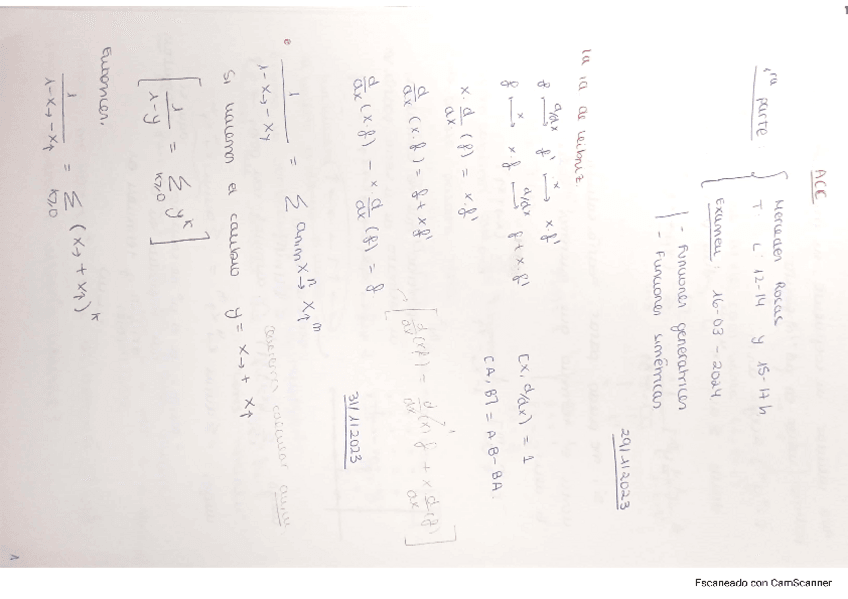 1
ACC
1ra parte:
Mercedes Rosas
T: L: 12-14 y 15-17h
Examen: 16-03-2024
- Funciones generatrices
- Funciones simétricas
29/1/2023
la id de Leibniz.
f d/dx→ f' x→ x·f'
f x→ x·f d/dx→ f + x f'
[x, d/dx] = 1
[A, B] = AB - BA
x · d/dx (f) = x·f'
d/dx (x·f) = f + x f'
[d/dx (xf) = d/dx (x) f + x d/dx (f)]
d/dx (x·f) - x d/dx (f) = f
31/1/2023
1/(1 - x→ - x↑) = Σ an,m x→^n x↑^m
queremos calcular an,m
Si hacemos el cambio y = x→ + x↑
[1/(1-y) = Σ k≥0 y^k]
Entonces,
1/(1 - x→ - x↑) = Σ k≥0 (x→ + x↑)^k
Escaneado con CamScanner